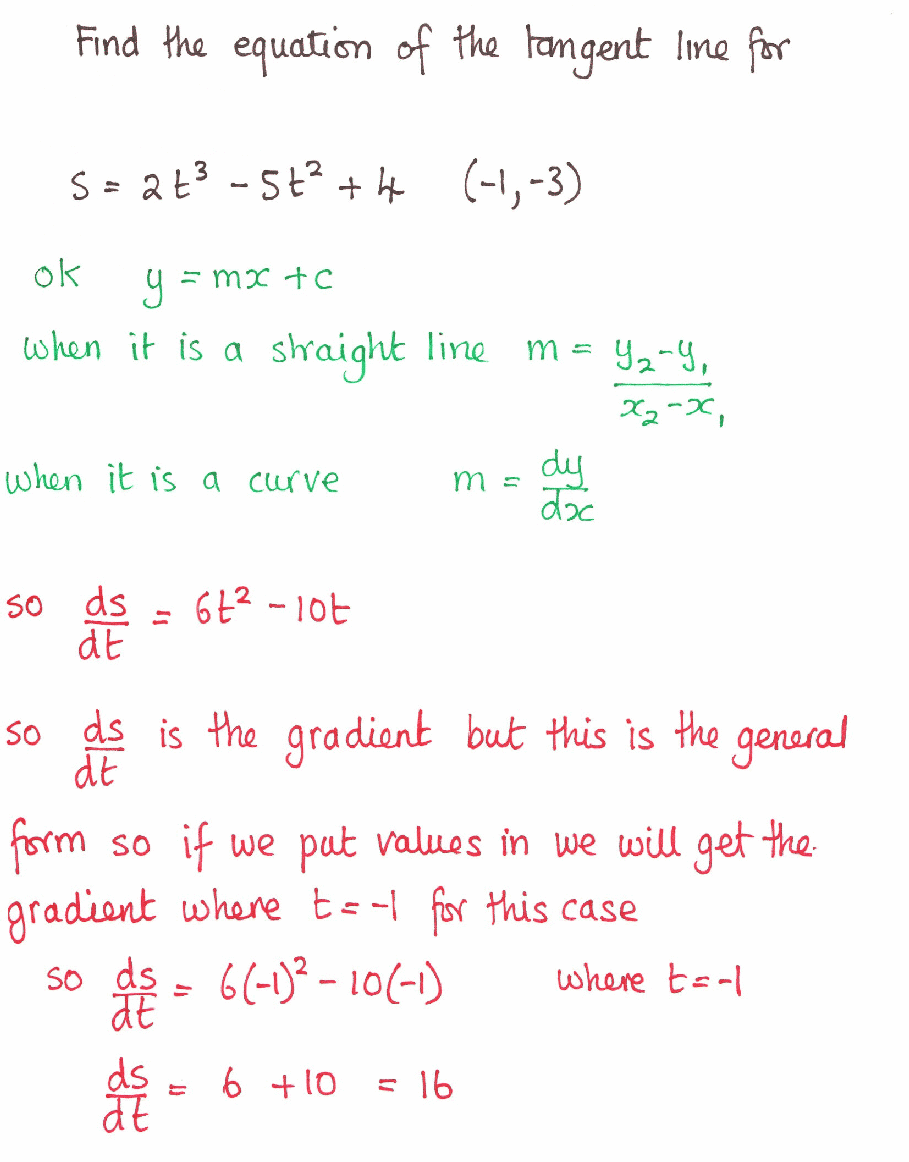 Find the equation of the tangent line for
S = 2t³ - 5t² + 4 (-1,-3)
ok y = mx + c
when it is a straight line m = y₂-y₁ / x₂-x₁
when it is a curve m = dy/dx
so ds/dt = 6t² - 10t
so ds/dt is the gradient but this is the general
form so if we put values in we will get the.
gradient where t = -1 for this case
so ds/dt = 6(-1)² - 10(-1) where t = -1
ds/dt = 6 + 10 = 16